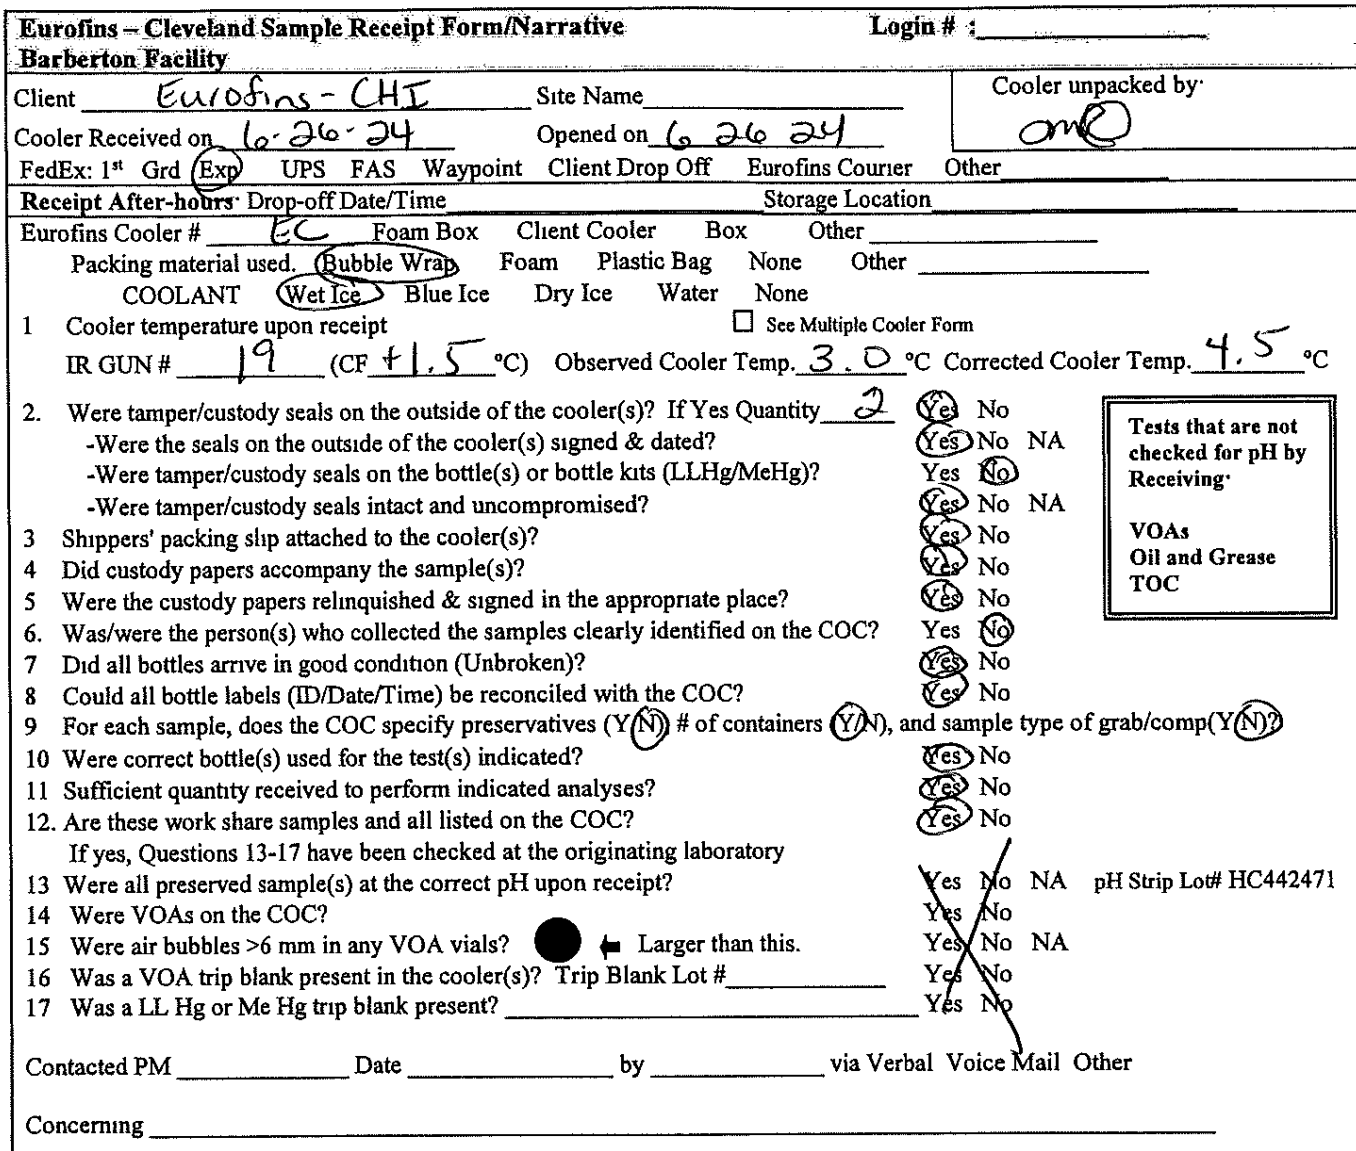 Eurofins – Cleveland Sample Receipt Form/Narrative Login # :
Barberton Facility
Client Eurofins - CHI Site Name Cooler unpacked by:
Cooler Received on 6-26-24 Opened on 6 26 24
FedEx: 1st Grd Exp UPS FAS Waypoint Client Drop Off Eurofins Courier Other
Receipt After-hours: Drop-off Date/Time Storage Location
Eurofins Cooler # EC Foam Box Client Cooler Box Other
Packing material used. Bubble Wrap Foam Plastic Bag None Other
COOLANT Wet Ice Blue Ice Dry Ice Water None
1 Cooler temperature upon receipt ☐ See Multiple Cooler Form
IR GUN # 19 (CF +1.5 °C) Observed Cooler Temp. 3.0 °C Corrected Cooler Temp. 4.5 °C
2. Were tamper/custody seals on the outside of the cooler(s)? If Yes Quantity 2 Yes No
-Were the seals on the outside of the cooler(s) signed & dated? Yes No NA
-Were tamper/custody seals on the bottle(s) or bottle kits (LLHg/MeHg)? Yes No
-Were tamper/custody seals intact and uncompromised? Yes No NA
3 Shippers' packing slip attached to the cooler(s)? Yes No
4 Did custody papers accompany the sample(s)? Yes No
5 Were the custody papers relinquished & signed in the appropriate place? Yes No
6. Was/were the person(s) who collected the samples clearly identified on the COC? Yes No
7 Did all bottles arrive in good condition (Unbroken)? Yes No
8 Could all bottle labels (ID/Date/Time) be reconciled with the COC? Yes No
9 For each sample, does the COC specify preservatives (Y/N), # of containers (Y/N), and sample type of grab/comp(Y/N)?
10 Were correct bottle(s) used for the test(s) indicated? Yes No
11 Sufficient quantity received to perform indicated analyses? Yes No
12. Are these work share samples and all listed on the COC? Yes No
If yes, Questions 13-17 have been checked at the originating laboratory
13 Were all preserved sample(s) at the correct pH upon receipt? Yes No NA pH Strip Lot# HC442471
14 Were VOAs on the COC? Yes No
15 Were air bubbles >6 mm in any VOA vials? Larger than this. Yes No NA
16 Was a VOA trip blank present in the cooler(s)? Trip Blank Lot # Yes No
17 Was a LL Hg or Me Hg trip blank present? Yes No
Tests that are not
checked for pH by
Receiving:
VOAs
Oil and Grease
TOC
Contacted PM Date by via Verbal Voice Mail Other
Concerning